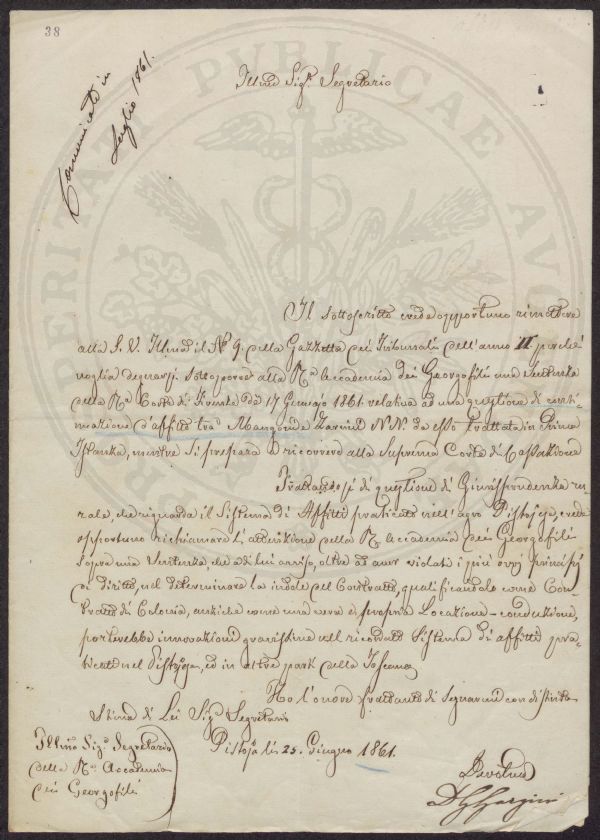 38
Comunicato in
luglio 1861.
Illmo Sigr. Segretario
Il Sottoscritto crede opportuno rimettere
alla S. V. Illma il No 9. della Gazzetta dei Tribunali dell'anno II perché
voglia degnarsi sottoporre alla Ra. Accademia dei Georgofili una Sentenza
della Ra. Corte di Firenze de' 17 Gennajo 1861 relativa ad una questione di conti-
nuazione d'affitto tra Mangoni e Zarini NN. da esso trattata in Prima
Istanza, mentre si prepara a ricorrere alla Suprema Corte di Cassazione
Trattandosi di questione di Giurisprudenza ru-
rale, che riguarda il Sistema di Affitti praticato nell'agro Pistojese, crede
opportuno richiamare l'attenzione della R. Accademia dei Georgofili
sopra una Sentenza, che a di lui avviso, oltre ad aver violati i più ovvj principj
di diritto, nel determinare la indole del Contratto, qualificandolo come Con-
tratto di Colonia, anziché come una vera e propria Locazione-conduzione,
porterebbe innovazioni gravissime nel ricordato Sistema di affitti pra-
ticato nel Pistojese, ed in altre parti della Toscana
Ho l'onore frattanto di segnarmi con distinta
Stima di Lei Sigr Segretario
Pistoja lì 25. Giugno 1861.
Illmo Sigr. Segretario
della Ra. Accademia
dei Georgofili
Devotmo